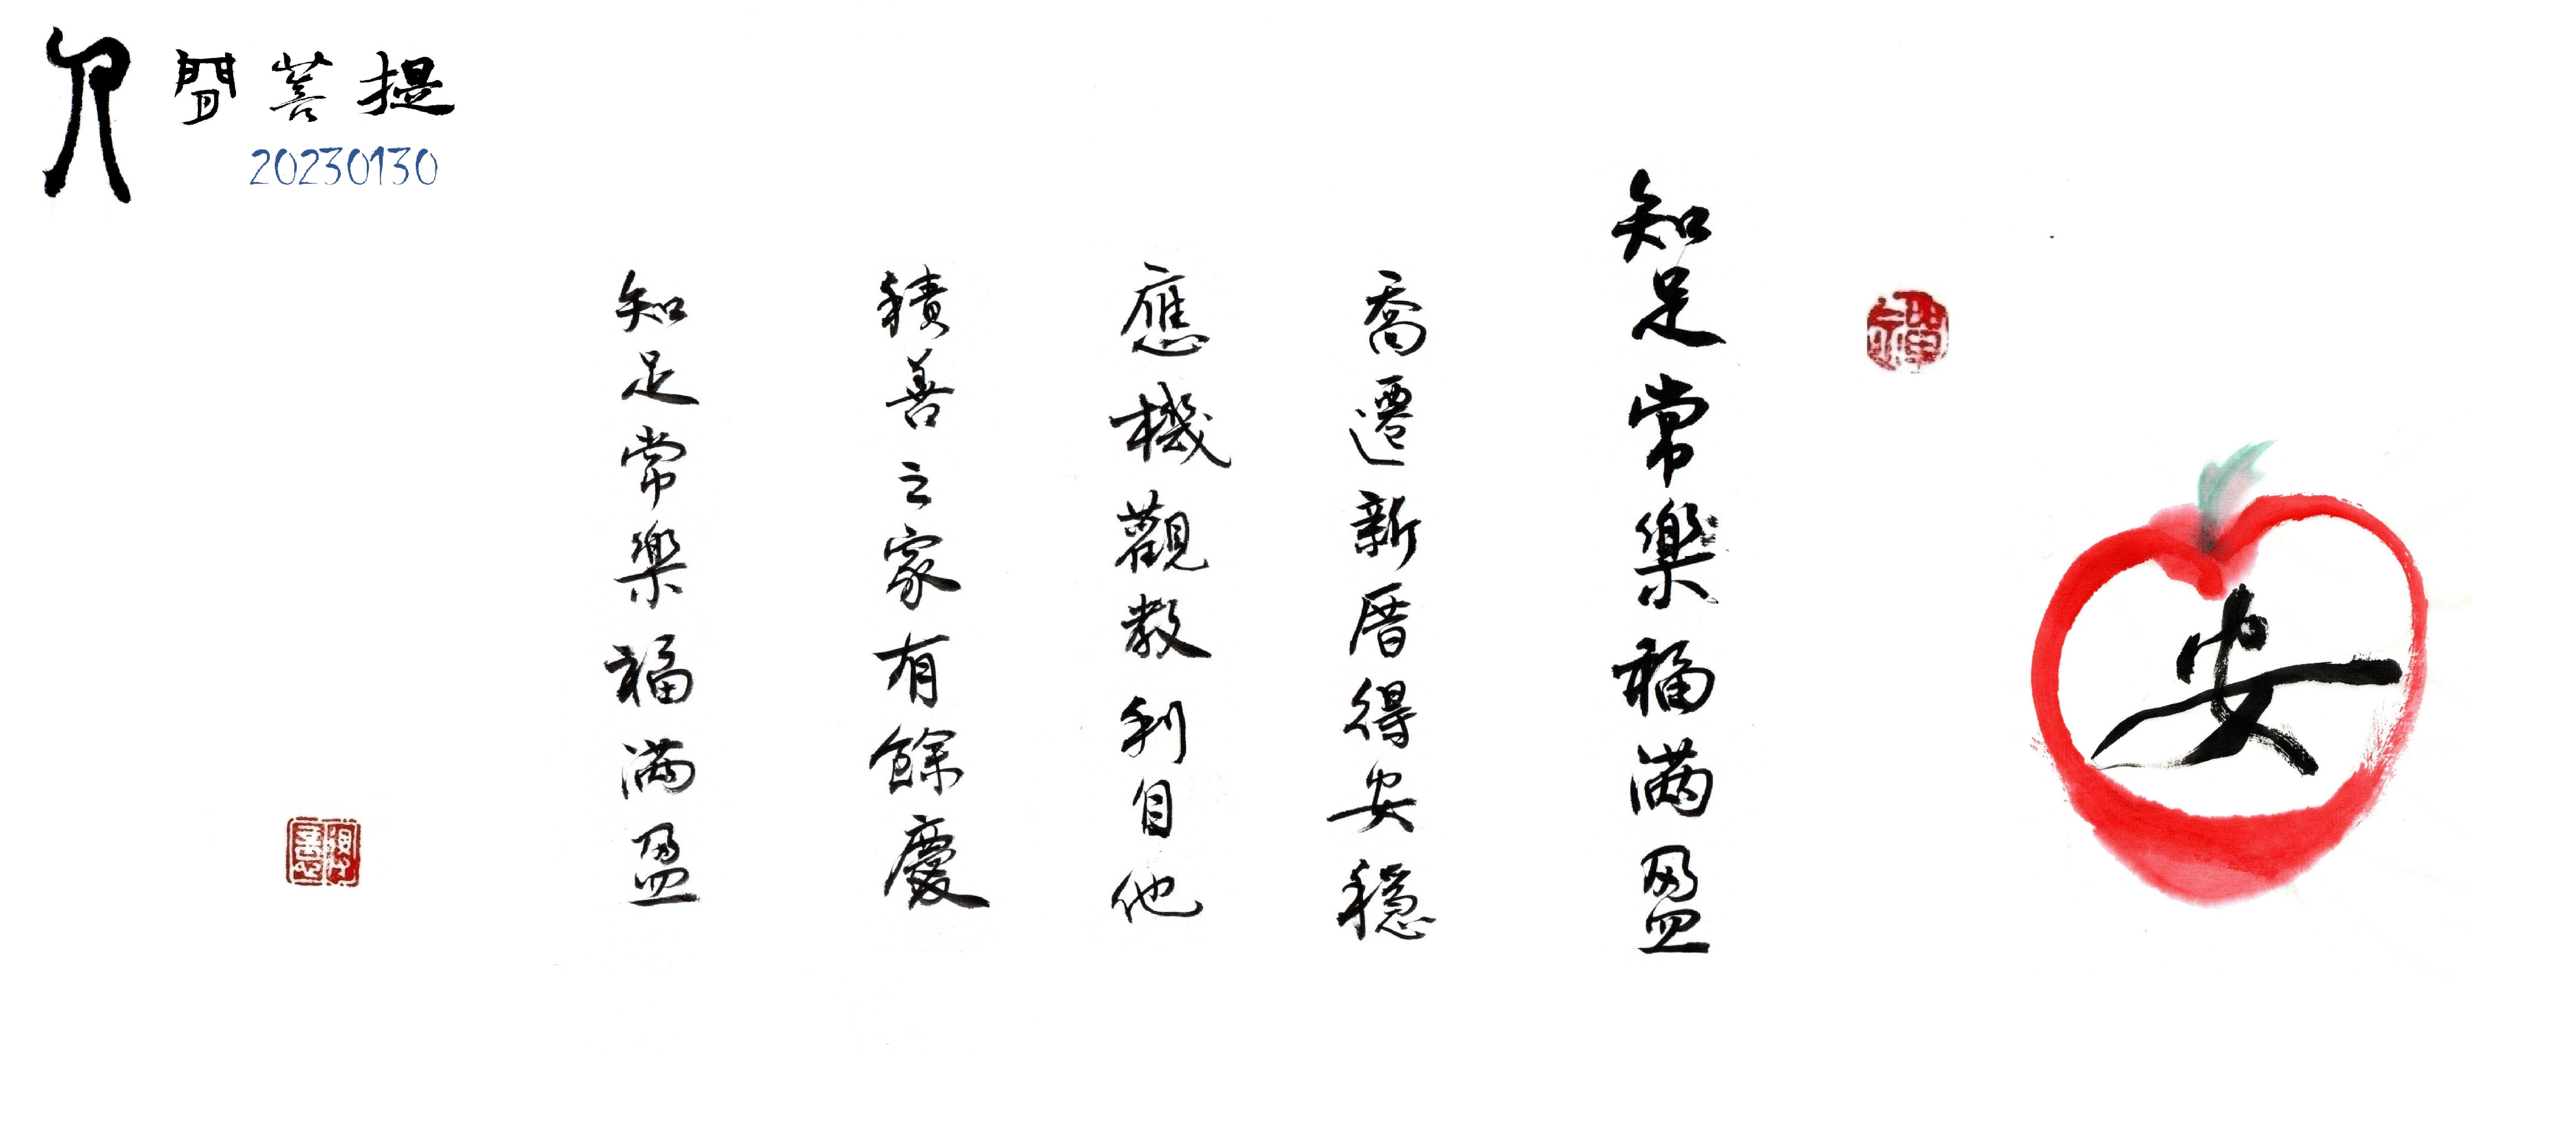 人間菩提
20230130
安
知足常樂福滿盈
喬遷新厝得安穩
應機觀教利自他
積善之家有餘慶
知足常樂福滿盈